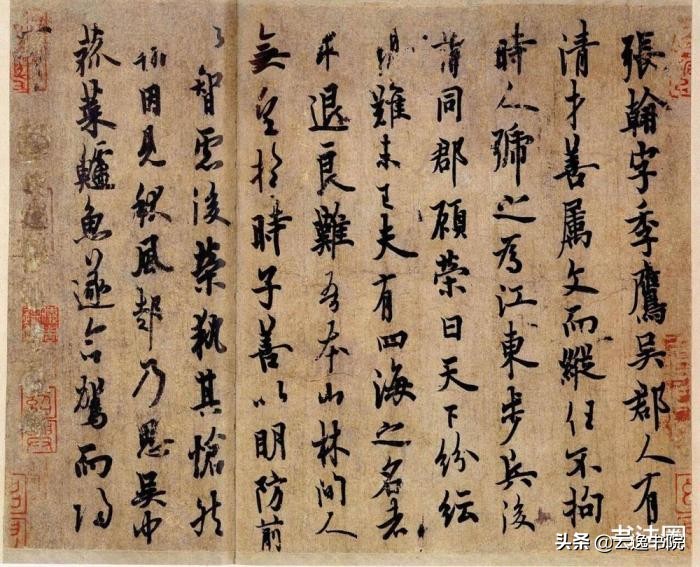 張翰字季鷹吳郡人有
清才善屬文而縱任不拘
時人號之為江東步兵後
謂同郡顧榮曰天下紛紜
禍難未已夫有四海之名者
求退良難吾本山林間人
無望於時子善以明防前
以智慮後榮執其愴然
翰因見秋風起乃思吳中
菰菜鱸魚遂命駕而歸
书法网
头条 @云逸书院